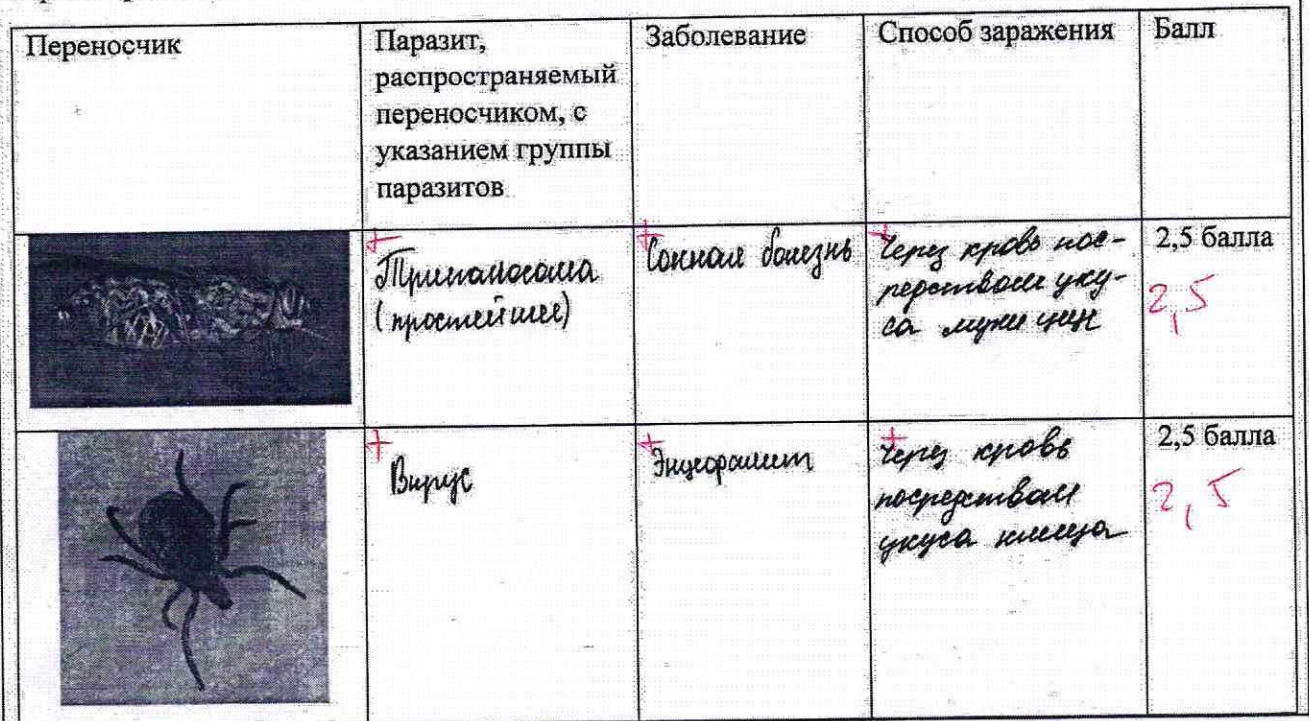 Переносчик
Паразит,
распространяемый
переносчиком, с
указанием группы
паразитов
Заболевание
Способ заражения
Балл
Трипаносома
(простейшее)
Сонная болезнь
Через кровь пос-
редством уку-
са мухи цеце
2,5 балла
2,5
Вирус
Энцефалит
Через кровь
посредством
укуса клеща
2,5 балла
2,5